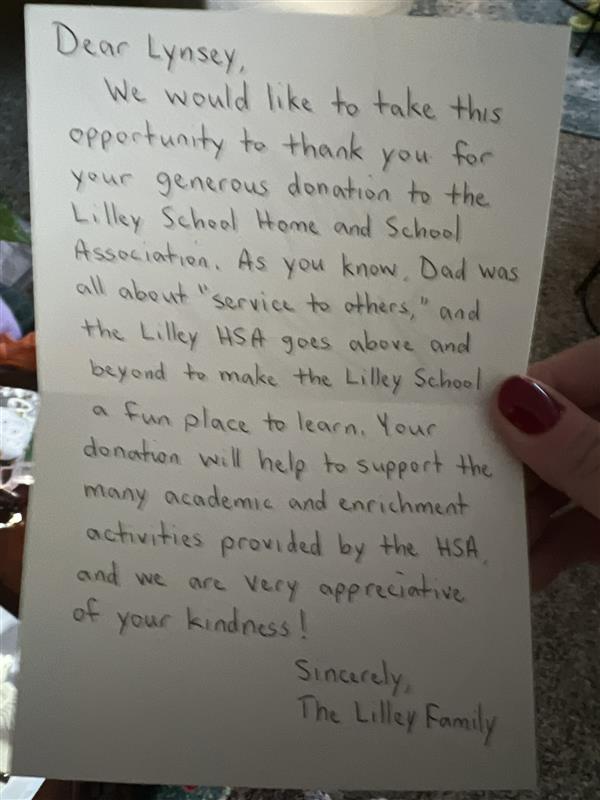 Dear Lynsey,
We would like to take this
opportunity to thank you for
your generous donation to the
Lilley School Home and School
Association. As you know, Dad was
all about "service to others," and
the Lilley HSA goes above and
beyond to make the Lilley School
a fun place to learn. Your
donation will help to support the
many academic and enrichment
activities provided by the HSA,
and we are very appreciative
of your kindness!
Sincerely,
The Lilley Family